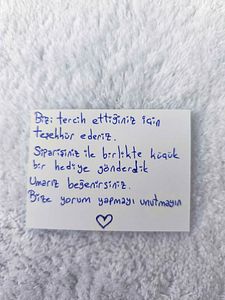 Bizi tercih ettiğiniz için
teşekkür ederiz.
Siparişiniz ile birlikte küçük
bir hediye gönderdik
Umarız beğenirsiniz.
Bize yorum yapmayı unutmayın